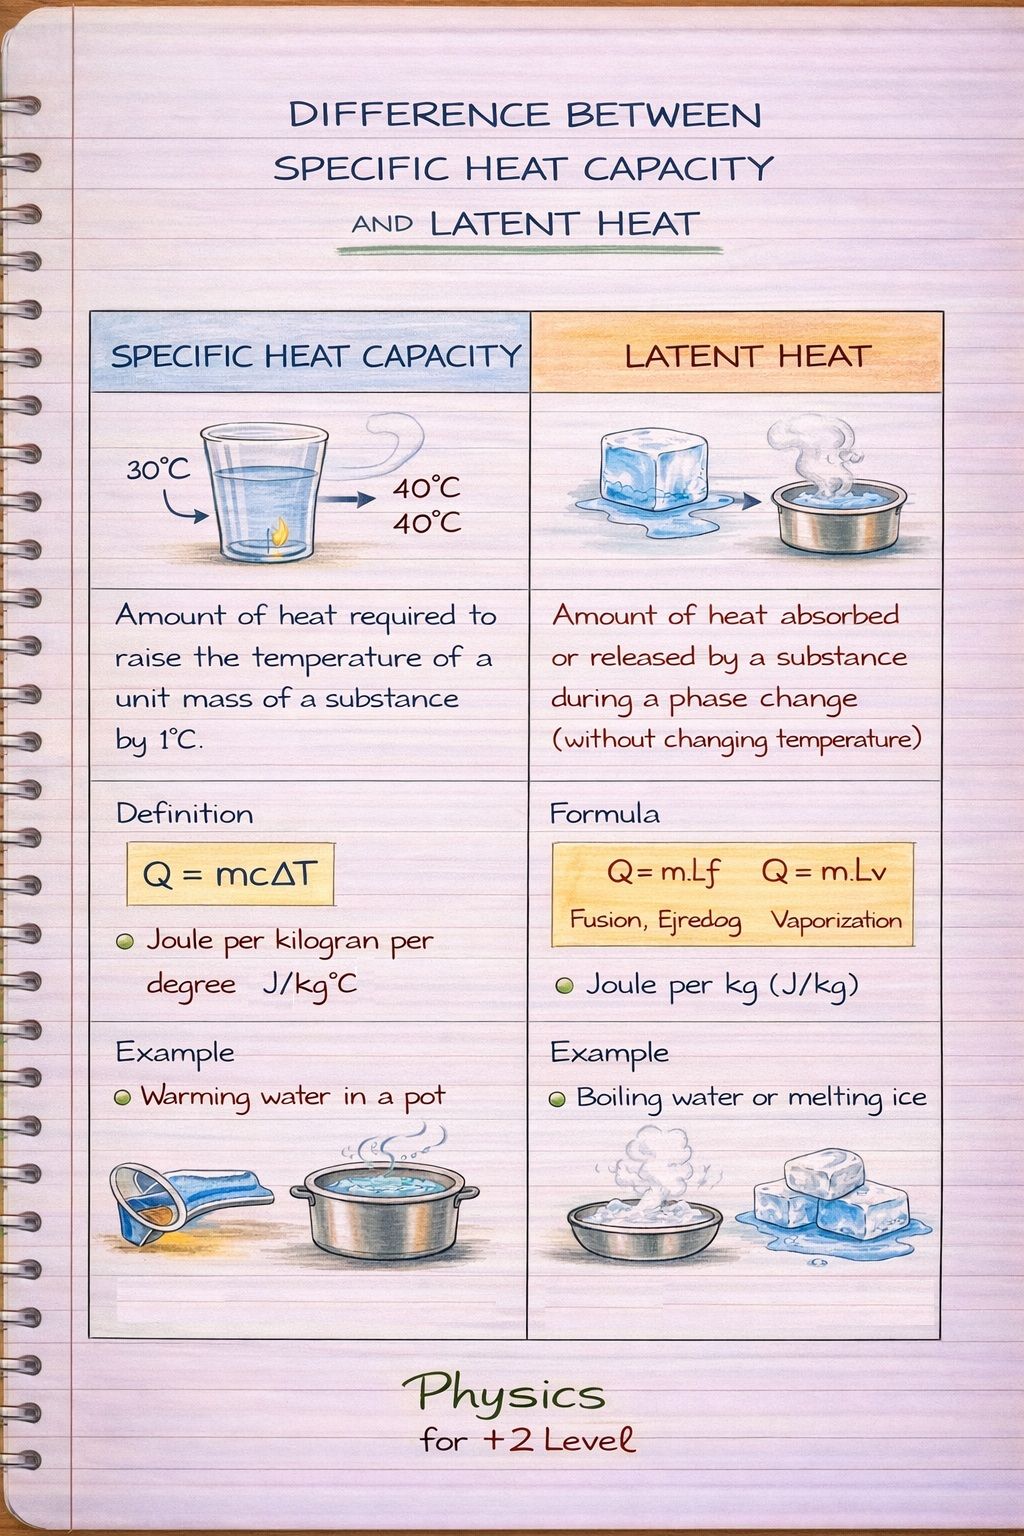 DIFFERENCE BETWEEN
SPECIFIC HEAT CAPACITY
AND LATENT HEAT
SPECIFIC HEAT CAPACITY
30°C
40°C
40°C
Amount of heat required to
raise the temperature of a
unit mass of a substance
by 1°C.
Definition
Q = mcΔT
Joule per kilogran per
degree J/kg°C
Example
Warming water in a pot
LATENT HEAT
Amount of heat absorbed
or released by a substance
during a phase change
(without changing temperature)
Formula
Q = m.Lf Q = m.Lv
Fusion, Ejredog Vaporization
Joule per kg (J/kg)
Example
Boiling water or melting ice
Physics
for +2 Level